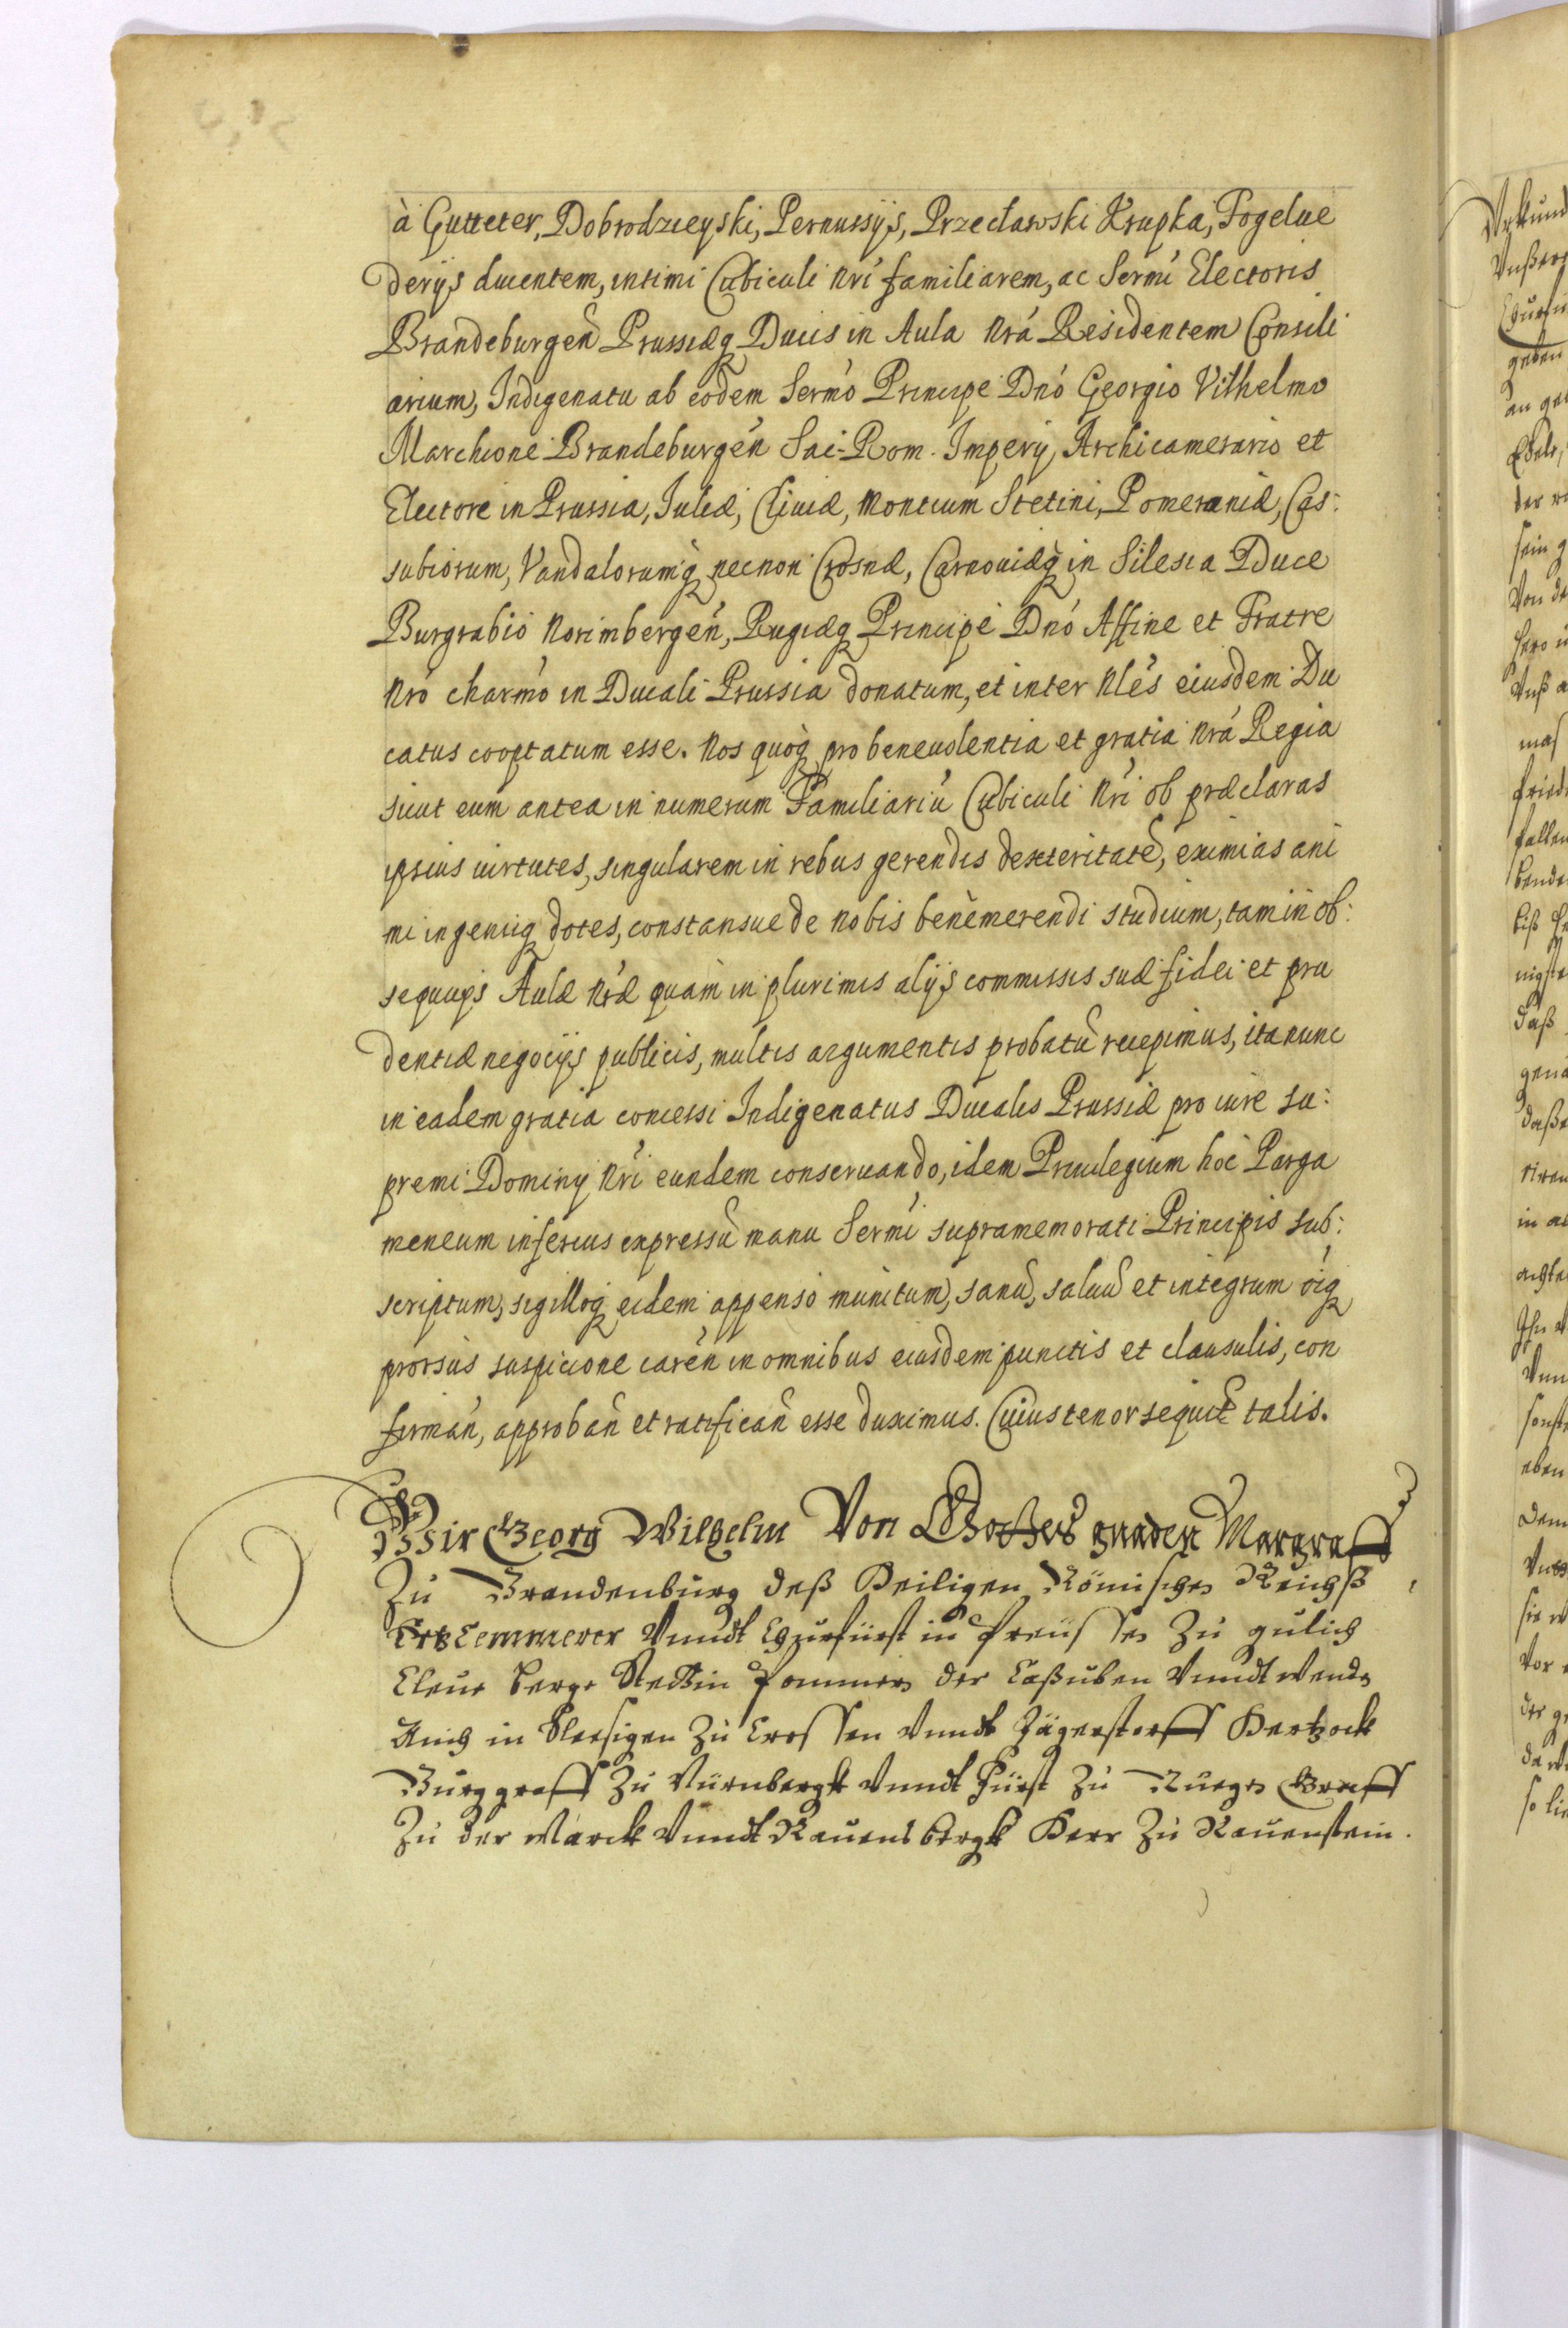 à Gutteter, Dobrodzieyski, Pernussÿs, Przecławski Krupka, Fogelue
derÿs ducentem, intimi Cubiculi Nrí familiarem, ac Sermí Electoris
Brandeburgeñ Prussiæq Ducis in Aula Nrá Residentem Consili
arium, Indigenatu ab eodem Sermó Principe Dnó Georgio Vilhelmo
Marchione Brandeburgeń Sac: Rom. Imperÿ, Archicamerario et
Electore in Prussia, Iuliæ, Cliuiæ, Montium Stetini, Pomeraniæ, Cas:
subiorum, Vandalorumq necnon Crosnæ, Carnouiæq in Silesia Duce
Burgrabio Norimbergeń, Rugiæq Principe Dnó Affine et Fratre
Nró charmó in Ducali Prussia donatum, et inter Nlés eiusdem Du
catus cooptatum esse. Nos quoq pro beneuolentia et gratia Nrá Regia
sicut eum antea in numerum Familiariũ Cubiculi Nrí ob præclaras
ipsius uirtutes, singularem in rebus gerendis dexteritatẽ, eximias ani
mi ingeniiq dotes, constansue de nobis benèmerendi studium, tam in ob:
sequiÿs Aulæ Nræ quàm in plurimis alÿs commissis suæ fidei et pru
dentiæ negocÿs publicis, multis argumentis probatũ recepimus, ita nunc
in eadem gratia concessi Indigenatus Ducalis Prussiæ pro iure su:
premi Dominÿ Nrí eundem conseruando, idem Priuilegium hoc Parga
meneum inferius expressũ manu Sermí supramemorati Principis sub:
scriptum, sigilloq eidem appenso munitum, sanũ, saluũ et integrum oiq
prorsus suspicione careń in omnibus eiusdem punctis et clausulis, con
firmań, approbań et ratificań esse duximus. Cuius tenor sequit talis.
Wir Georg Wilhelm Von Gottes gnaden Margraff
Zu Brandenburg deß Heiligen Römischen Reichß
Ertz Cemmerer Vnndt Churfürst in Preüssen Zu gulich
Cleue Berge Stettin Pommern der Caßuben Vnndt Wenden
Auch in Slesigen Zu Crossen Vnndt Jägerstorff Hertzock
Burggraff Zu Nürnbergk Vnndt Fürst Zu Ruegen Graff
Zu der Marck Vnndt Rauensbergk Herr Zu Rauenstein.